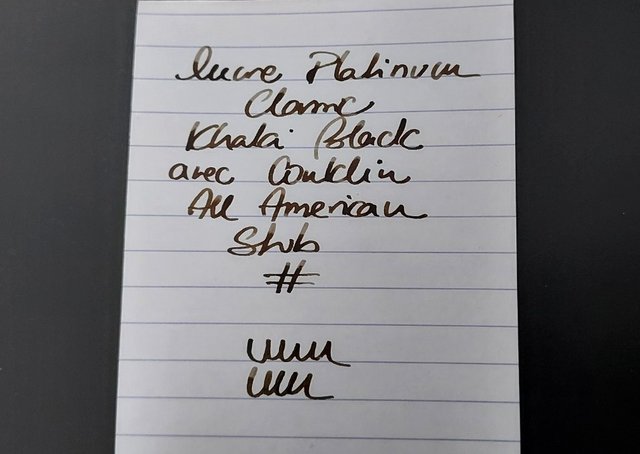 encre Platinum
Classic
Khaki Black
avec Conklin
All American
Stub
#